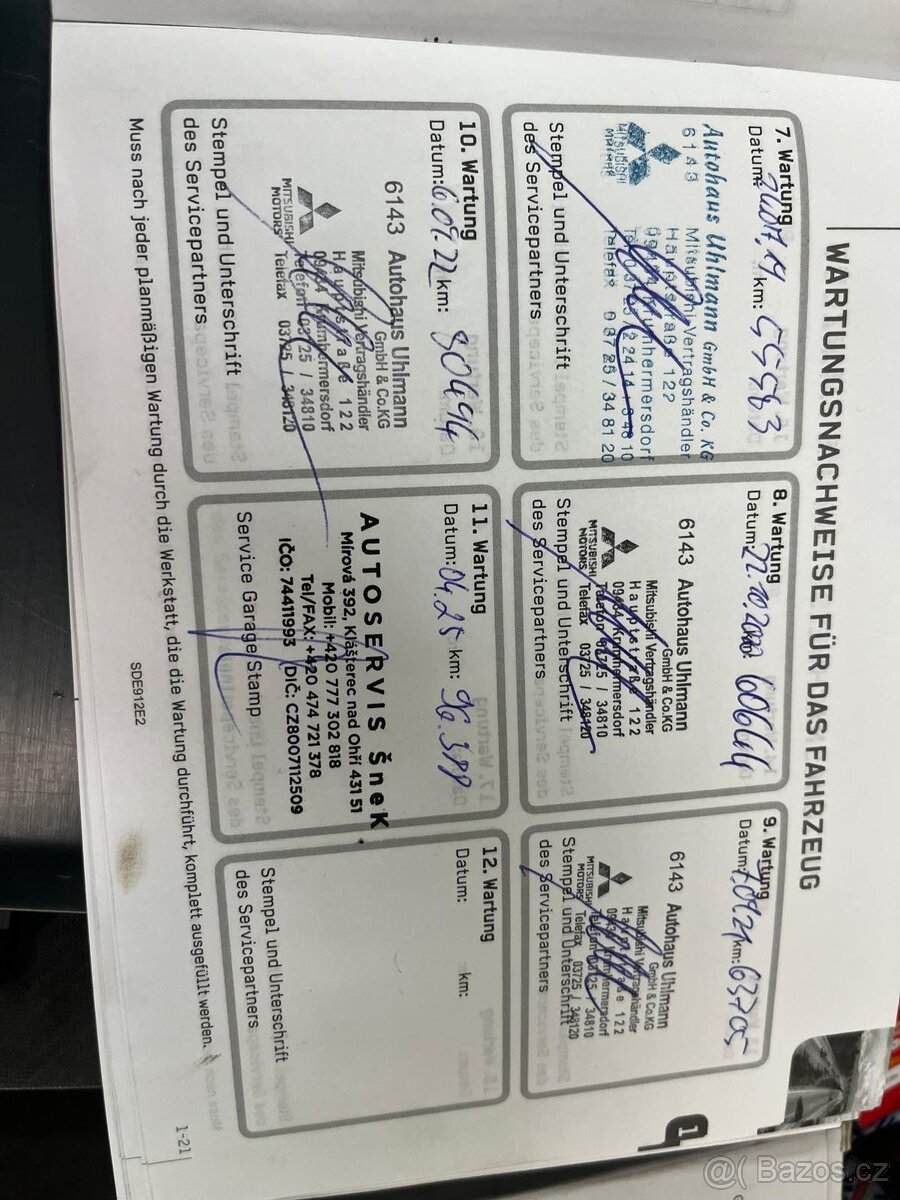 WARTUNGSNACHWEISE FÜR DAS FAHRZEUG
7. Wartung
Datum: km: 55583
Autohaus Uhlmann GmbH & Co. KG
6143 Mitsubishi-Vertragshändler
Hauptstraße 122
Krumhermersdorf
Telefax 03725/348120
Stempel und Unterschrift
des Servicepartners
8. Wartung
Datum: 22.10.2020 60644
6143 Autohaus Uhlmann
GmbH & Co.KG
Mitsubishi Vertragshändler
Hauptstraße 122
09434 Krumhermersdorf
MITSUBISHI Telefon 03725 / 34810
MOTORS Telefax 03725 / 348120
Stempel und Unterschrift
des Servicepartners
9. Wartung
Datum: km: 63705
6143 Autohaus Uhlmann
GmbH & Co.KG
Mitsubishi Vertragshändler
Hauptstraße 122
09434 Krumhermersdorf
MITSUBISHI Telefon 03725 / 34810
MOTORS Telefax 03725 / 348120
Stempel und Unterschrift
des Servicepartners
10. Wartung
Datum: 6.09.22 km: 80694
6143 Autohaus Uhlmann
GmbH & Co.KG
Mitsubishi Vertragshändler
Hauptstraße 122
09434 Krumhermersdorf
MITSUBISHI Telefon 03725 / 34810
MOTORS Telefax 03725 / 348120
Stempel und Unterschrift
des Servicepartners
11. Wartung
Datum: 04.25 km: 96.388
AUTOSERVIS ŠneK
Mírová 392, Klášterec nad Ohří 431 51
Mobil: +420 777 302 818
Tel/FAX: +420 474 721 378
IČO: 74411993 DIČ: CZ8007112509
Service Garage Stamp
12. Wartung
Datum: km:
Stempel und Unterschrift
des Servicepartners
Muss nach jeder planmäßigen Wartung durch die Werkstatt, die die Wartung durchführt, komplett ausgefüllt werden.
SDE912E2
1-21
1
@( Bazos.cz